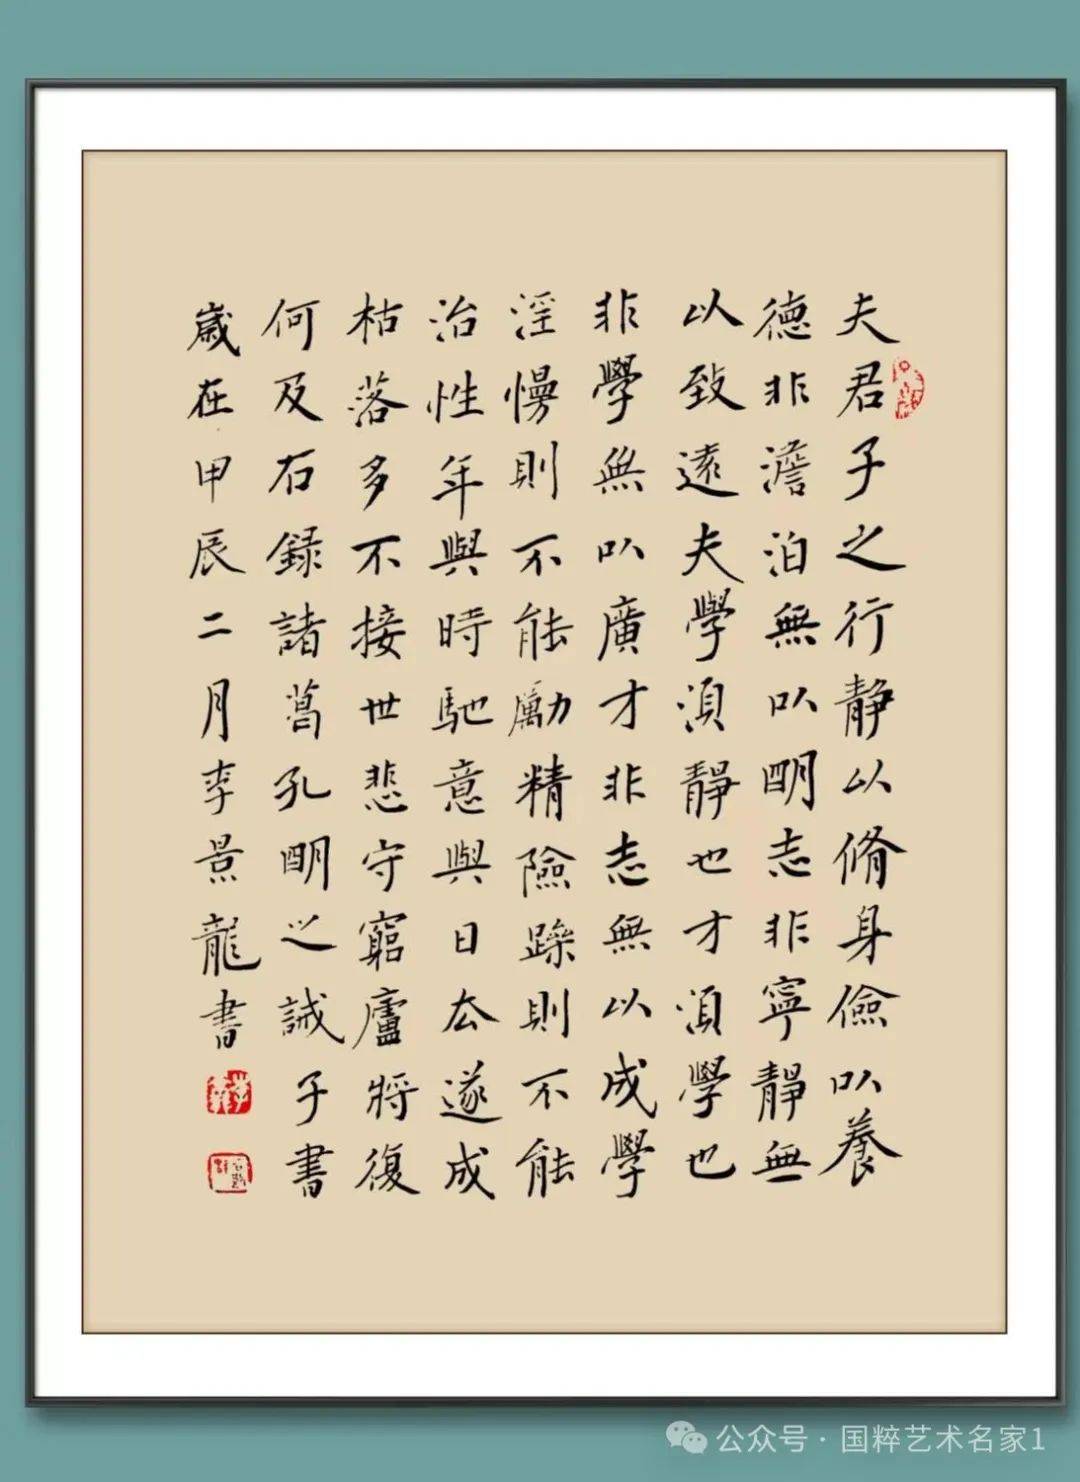 夫君子之行静以脩身儉以養
德非澹泊無以明志非寧靜無
以致遠夫學須靜也才須學也
非學無以廣才非志無以成學
淫慢則不能勵精險躁則不能
治性年與時馳意與日去遂成
枯落多不接世悲守窮廬將復
何及右錄諸葛孔明之誡子書
歲在甲辰二月李景龍書
公众号·国粹艺术名家1